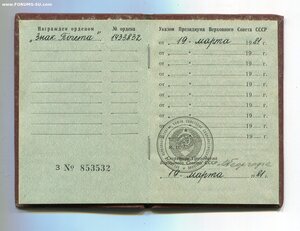 © www.FORUMS-SU.com
Награжден орденом № ордена
"Знак Почета" 1433832
З № 853532
Указом Президиума Верховного Совета СССР
от 19. марта 1981 г.
от 19 г.
от 19 г.
от 19 г.
от 19 г.
от 19 г.
от 19 г.
от 19 г.
от 19 г.
Секретарь Президиума
Верховного Совета СССР
19. марта 1981 г.